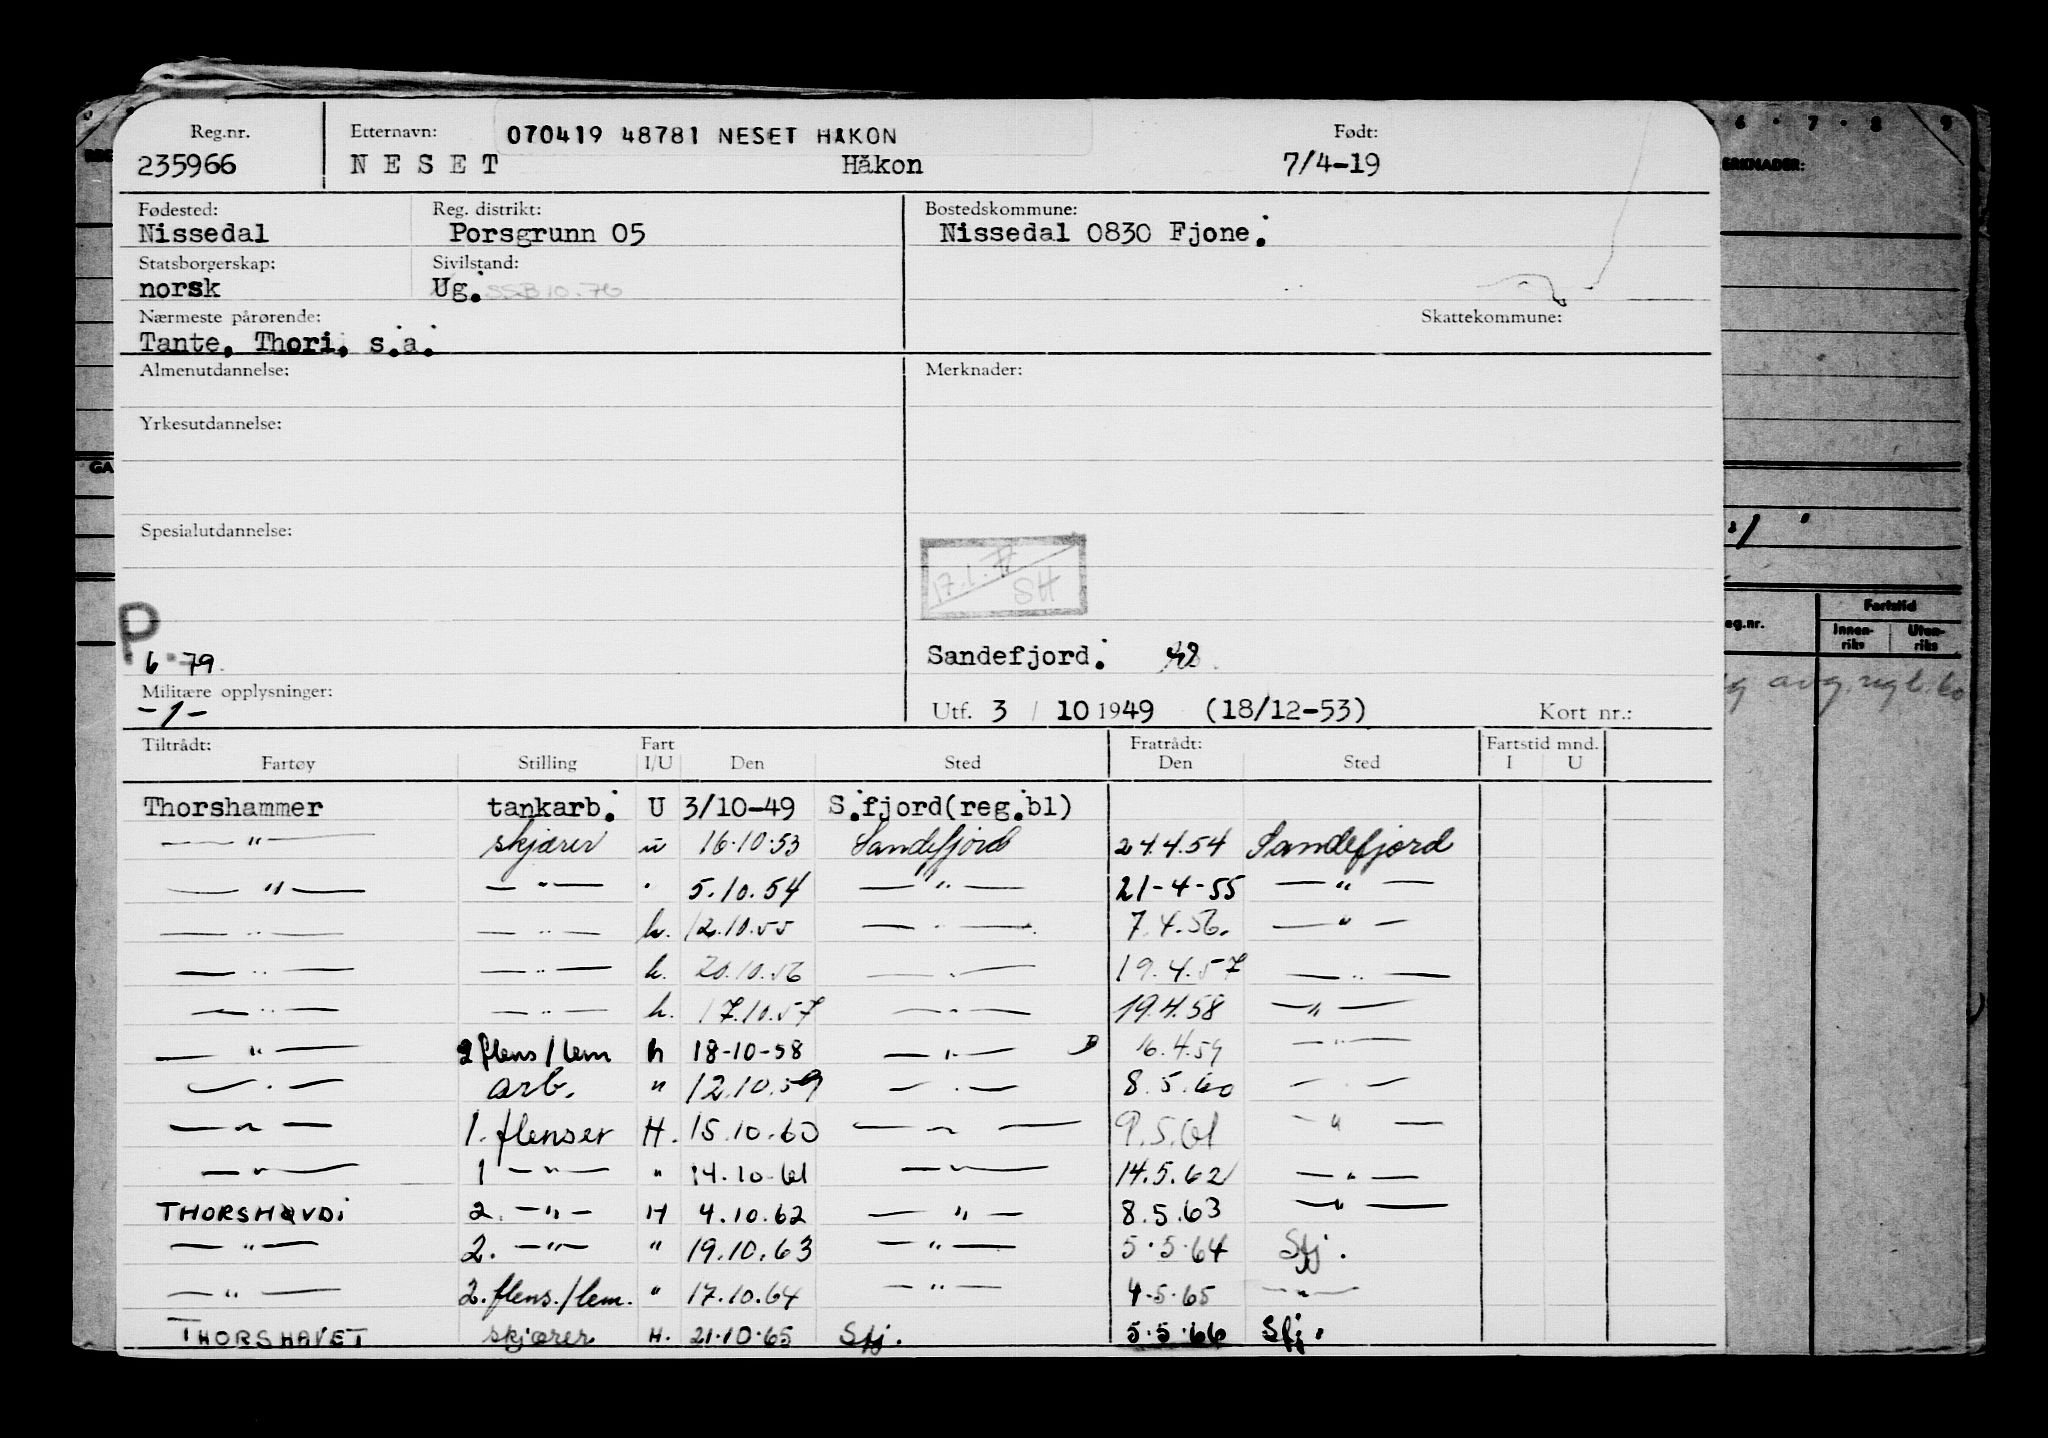 Reg.nr. Etternavn: 070419 48781 NESET HÅKON Født:
235966 NESET Håkon 7/4-19
Fødested: Reg. distrikt: Bostedskommune:
Nissedal Porsgrunn 05 Nissedal 0830 Fjone.
Statsborgerskap: Sivilstand:
norsk Ug. SSB 10.76
Nærmeste pårørende: Skattekommune:
Tante, Thori, s.a.
Almenutdannelse: Merknader:
Yrkesutdannelse:
Spesialutdannelse:
17.1.77
SH
P
6-79. Sandefjord. 42
Militære opplysninger:
-1- Utf. 3 / 10 1949 (18/12-53) Kort nr.:
Tiltrådt: Fart Fratrådt: Fartstid mnd.
Fartøy Stilling I/U Den Sted Den Sted I U
Thorshammer tankarb. U 3/10-49 S.fjord(reg.bl)
— " — skjærer u 16.10.53 Sandefjord 24.4.54 Sandefjord
— " — — " — " 5.10.54 — " — 21-4-55 — " —
— " — — " — h. 12.10.55 — " — 7.4.56. — " —
— " — — " — h. 20.10.56 — " — 19.4.57 — " —
— " — — " — h. 17.10.57 — " — 19.4.58 — " —
— " — 2 flens/lem h 18-10-58 — " — 16.4.59 — " —
— " — arb. " 12.10.59 — " — 8.5.60 — " —
— " — 1. flenser H. 15.10.60 — " — 9.5.61 — " —
— " — 1 — " — " 14.10.61 — " — 14.5.62 — " —
THORSHØVDI 2. — " — H 4.10.62 — " — 8.5.63 — " —
— " — 2. — " — " 19.10.63 — " — 5.5.64 Sfj.
— " — 2. flens./lem. " 17.10.64 — " — 4.5.65 — " —
THORSHAVET skjærer H. 21.10.65 Sfj. 5.5.66 Sfj.
6 · 7 · 8 9
ERKNADER:
GA
eg.nr. Fartstid
Innen-riks Uten-riks